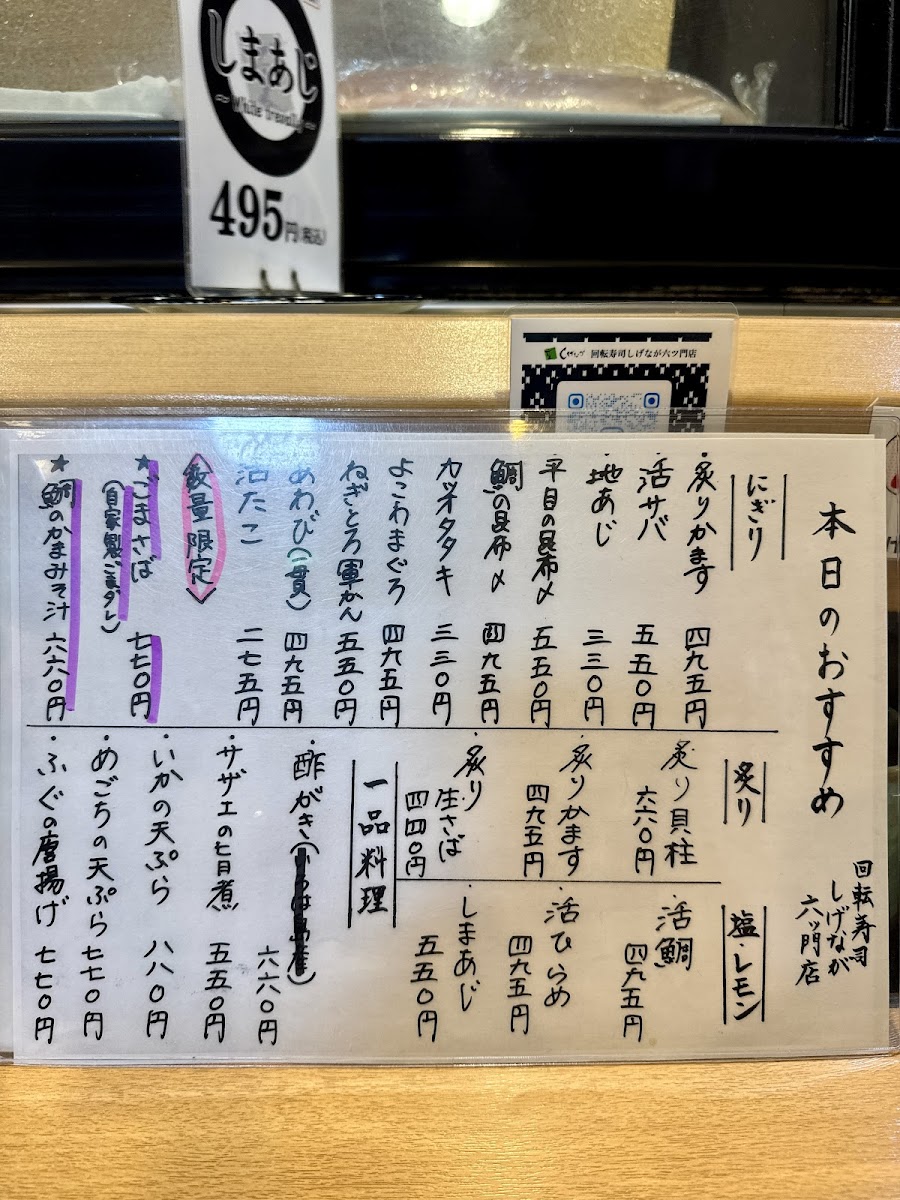 しまあじ
~ White trevally ~
495円(税込)
回転寿司しげなが六ツ門店
本日のおすすめ
回転寿司
しげなが
六ッ門店
にぎり
・炙りかます 四九五円
活サバ 五五〇円
・地あじ 三三〇円
平目の昆布〆 五五〇円
鯛の昆布〆 四九五円
カツオタタキ 三三〇円
よこわまぐろ 四九五円
ねぎとろ軍かん 五五〇円
あわび(一貫) 四九五円
活たこ 二七五円
数量限定
★ごまさば 七七〇円
(自家製ごまダレ)
★鯛のかまみそ汁 六六〇円
炙り
炙り貝柱 六六〇円
・炙りかます 四九五円
・炙り生さば 四四〇円
塩・レモン
・活鯛 四九五円
・活ひらめ 四九五円
・しまあじ 五五〇円
一品料理
・酢がき 六六〇円
・サザエの旨煮 五五〇円
・いかの天ぷら 八八〇円
・めごちの天ぷら 七七〇円
・ふぐの唐揚げ 七七〇円